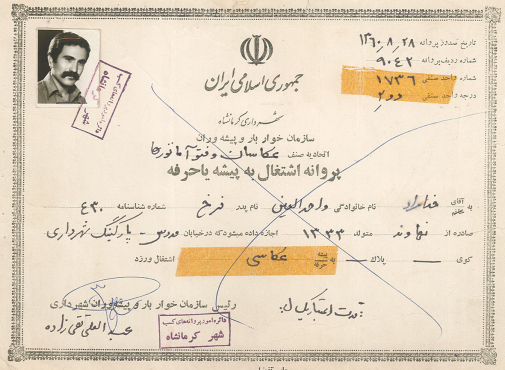 تاریخ صدور پروانه ۱۳۶۰٫۸٫۲۸
شماره ردیف پروانه ۹۰۴۲
شماره واحد صنفی ۱۷۳۶
درجه واحد صنفی دو ۲
جمهوری اسلامی ایران
شهرداری کرمانشاه
سازمان خوار بار و پیشه وران
اتحادیه صنف عکاسان و فتوآماتورها
پروانه اشتغال به پیشه یا حرفه
به آقای نام خانوادگی واحدالعین نام پدر فرخ شماره شناسنامه ۴۳۰
صادره از نهاوند متولد ۱۳۳۳ اجازه داده میشود که در خیابان مدرس - پارکینگ شهرداری
کوی — پلاک — به پیشه حرفه عکاسی اشتغال ورزد
رئیس سازمان خوار بار و پیشه وران شهرداری
مدت اعتبار یکسال:
عبدالعلی تقی زاده
دایره امور پروانه های کسب
شهر کرمانشاه